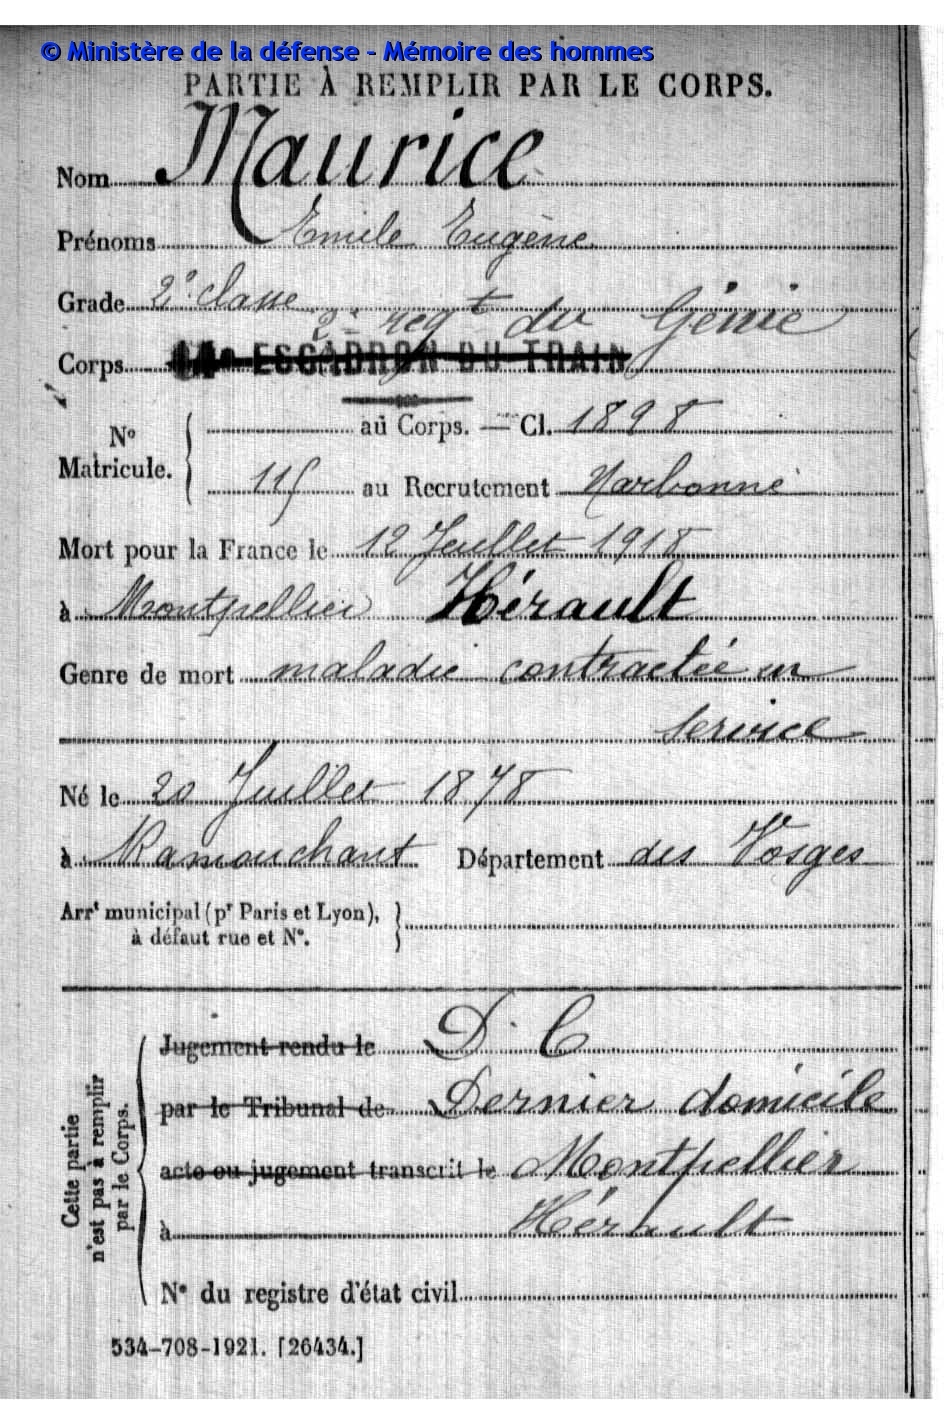 © Ministère de la défense - Mémoire des hommes
PARTIE À REMPLIR PAR LE CORPS.
Nom Maurice
Prénoms Emile Eugène
Grade 2e classe
2e regt du Génie
Corps ESCADRON DU TRAIN
au Corps. — Cl. 1898
No
Matricule.
115 au Recrutement Narbonne
Mort pour la France le 12 Juillet 1918
à Montpellier Hérault
Genre de mort maladie contractée en
service
Né le 20 Juillet 1878
à Ramonchant Département des Vosges
Arrt municipal (pr Paris et Lyon),
à défaut rue et No.
Cette partie
n'est pas à remplir
par le Corps.
Jugement rendu le D. C
par le Tribunal de Dernier domicile
acte ou jugement transcrit le Montpellier
à Hérault
No du registre d'état civil
534-708-1921. [26434.]